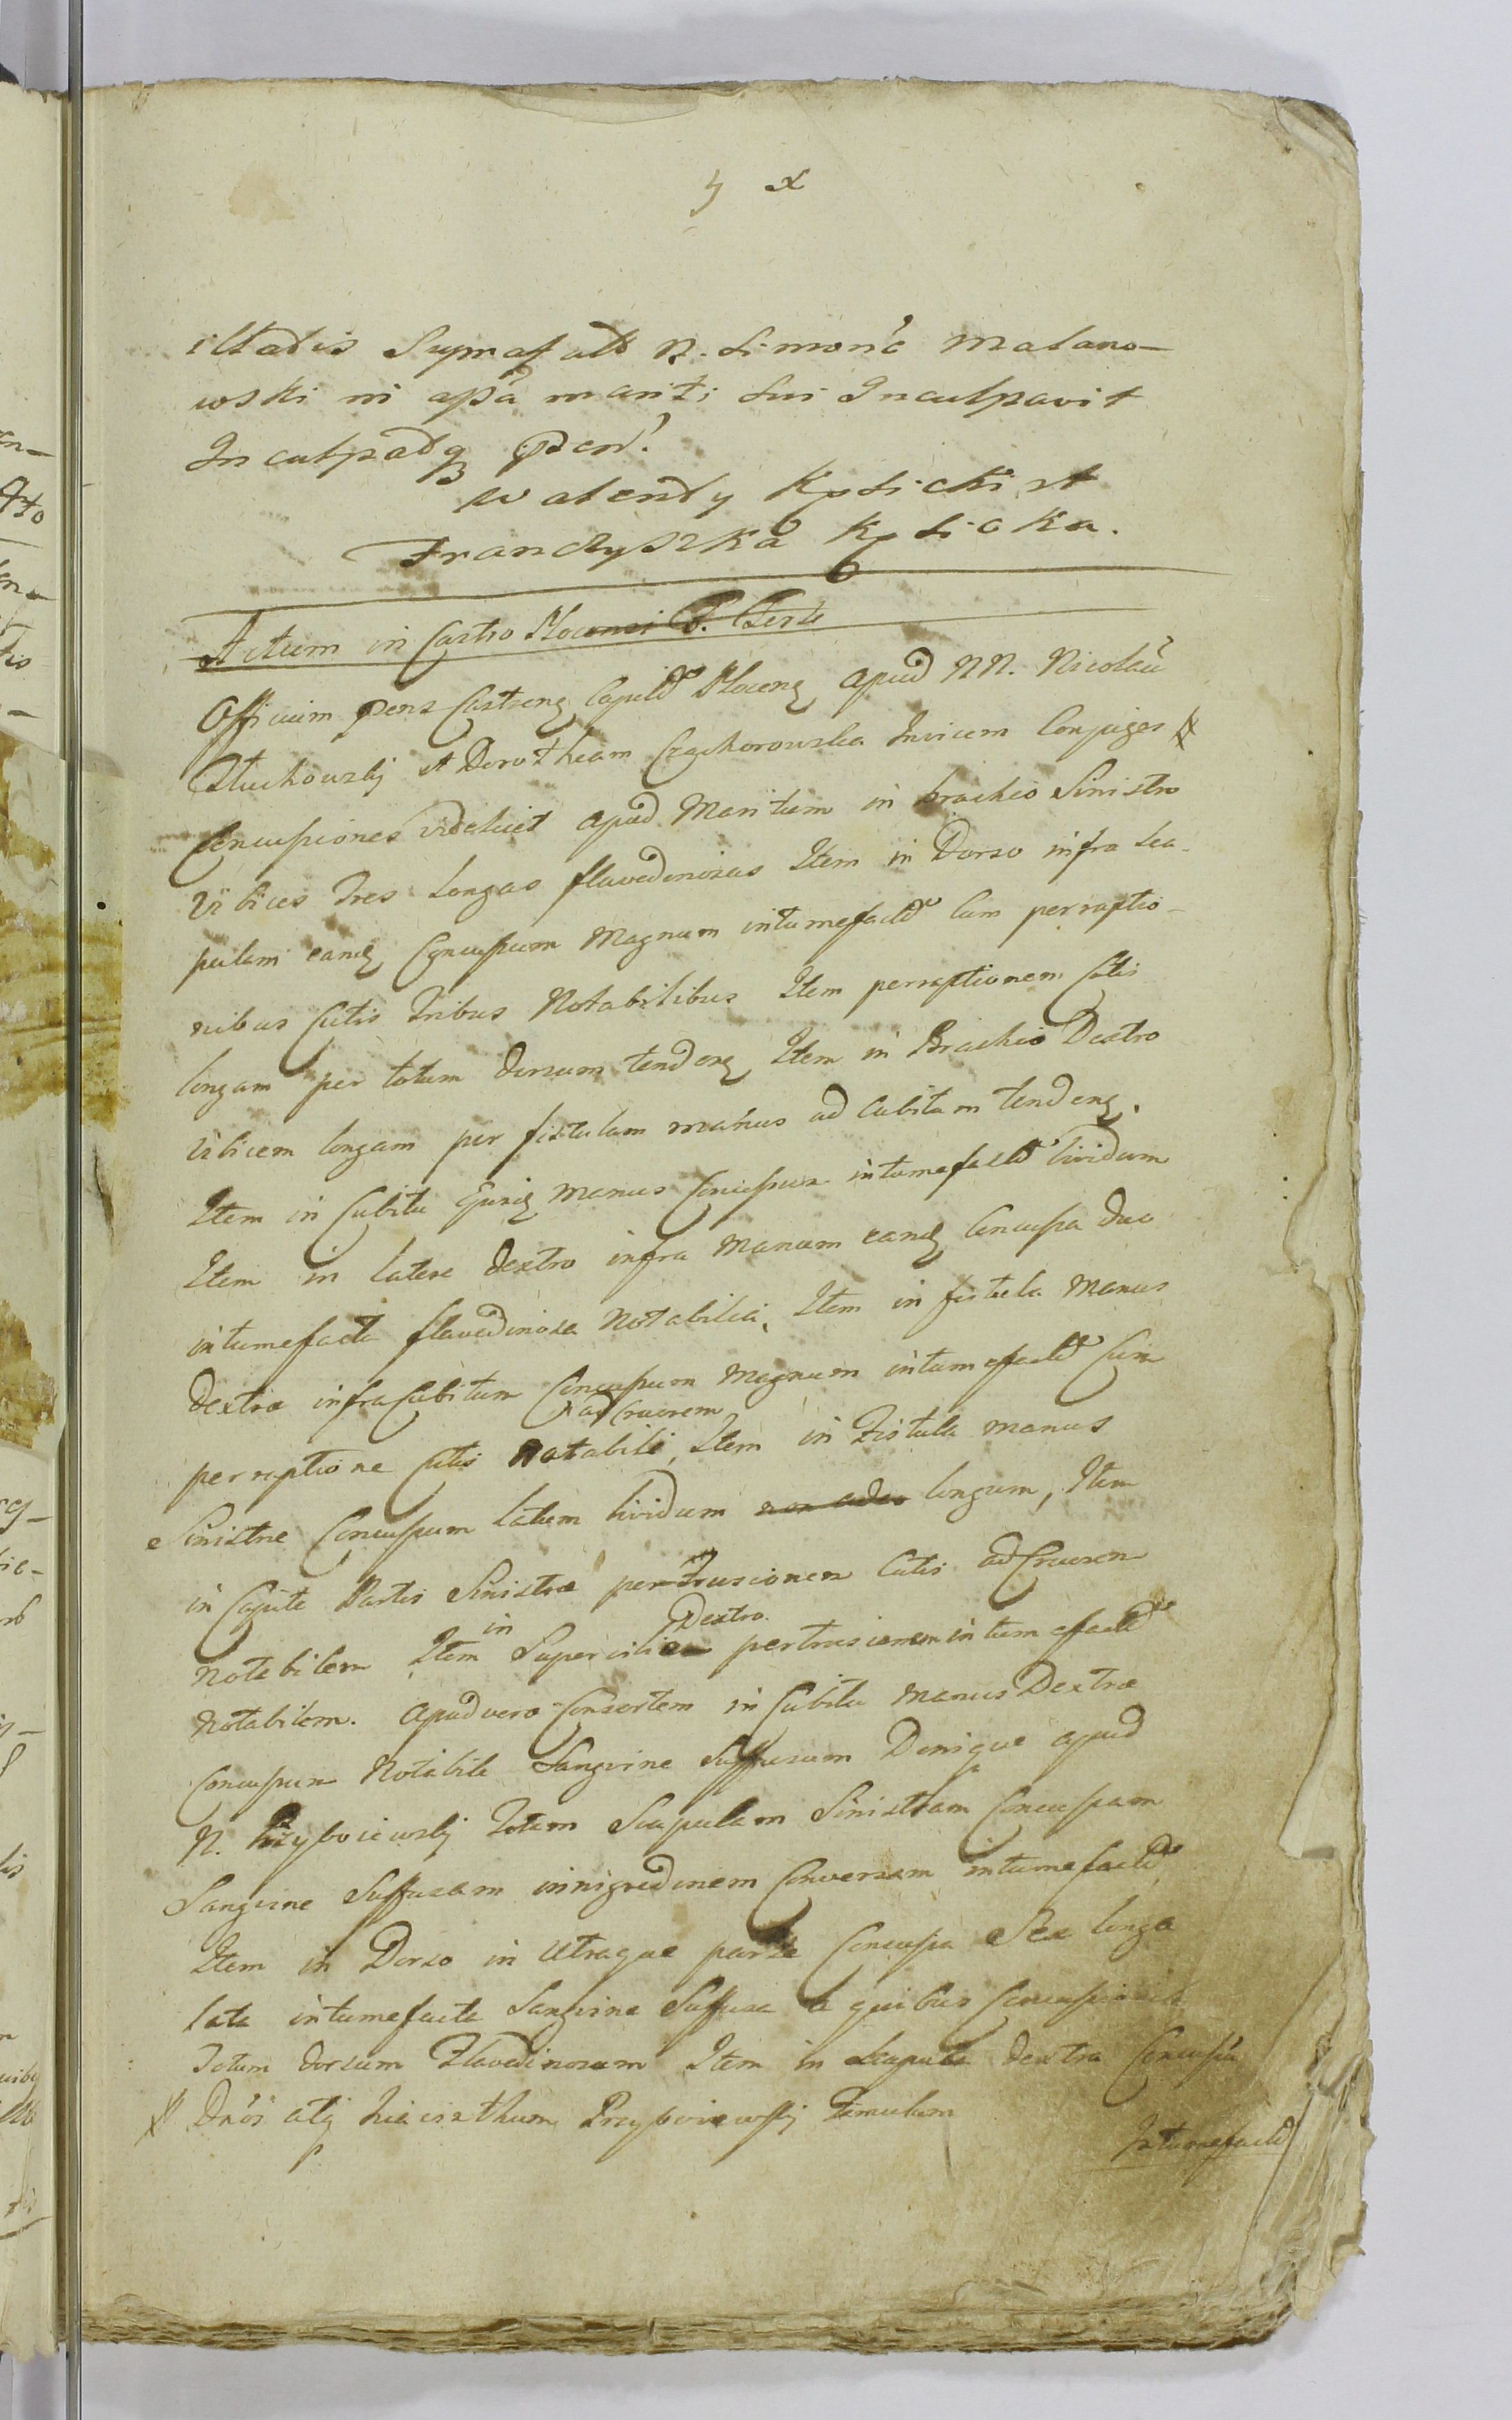 illatis Supra N. Simone Malano-
wski in apa mariti sui Inculpavit
Inculpatq
Walenty et
Franczyszka
Actum in Castro
Officium Castren Capitle Plocen apud NN. Nicolau
et Dorotheam Czachorowska Invicem Conjuges #
Concussiones videlicet apud Maritum in brachio Sinistro
Vibices Tres Longas flavedinosas Item in Dorso infra Sca-
pulam eand Concussum Magnum intumefact Cum perraptio-
nibus Cutis Tribus Notabilibus Item perraptionem Cutis
longam per totum dorsum tenden Item in Brachio Dextro
Vibicem longam per fistulam manus ad Cubitum tenden.
Item in Cubitu Ejusd manus Concussum intumefact lividum
Item in latere dextro infra Manum eand Concussa duo
intumefacta flavedinosa Notabilia, Item in fistula Manus
dextræ infra Cubitum Concussum Magnum intumefact Cum
ad Cruorem
perraptione Cutis Notabili, Item in Fistula manus
Sinistræ Concussum latum lividum non adeo longum, Item
in Capite Partis Sinistræ pertrusionem Cutis ad Cruorem
in Dextro.
notabilem Item Supercilio pertrusionem intumefact
Notabilem. Apud vero Consortem in Cubitu manus Dextræ
Concussum Notabile Sangvine Suffusum Denique apud
N. Totam Scapulam Sinistram Concussam
Sangvine Suffusam in nigredinem Conversam intumefact
Item in Dorso in utraque parte Concussa Sex longa
lata intumefacta Sangvine Suffusa a quibus Concussionib
Totum dorsum Flavedinosum Item in Scapula dextra Concussū
# atq Hiacinthum Famulum
Intumefact